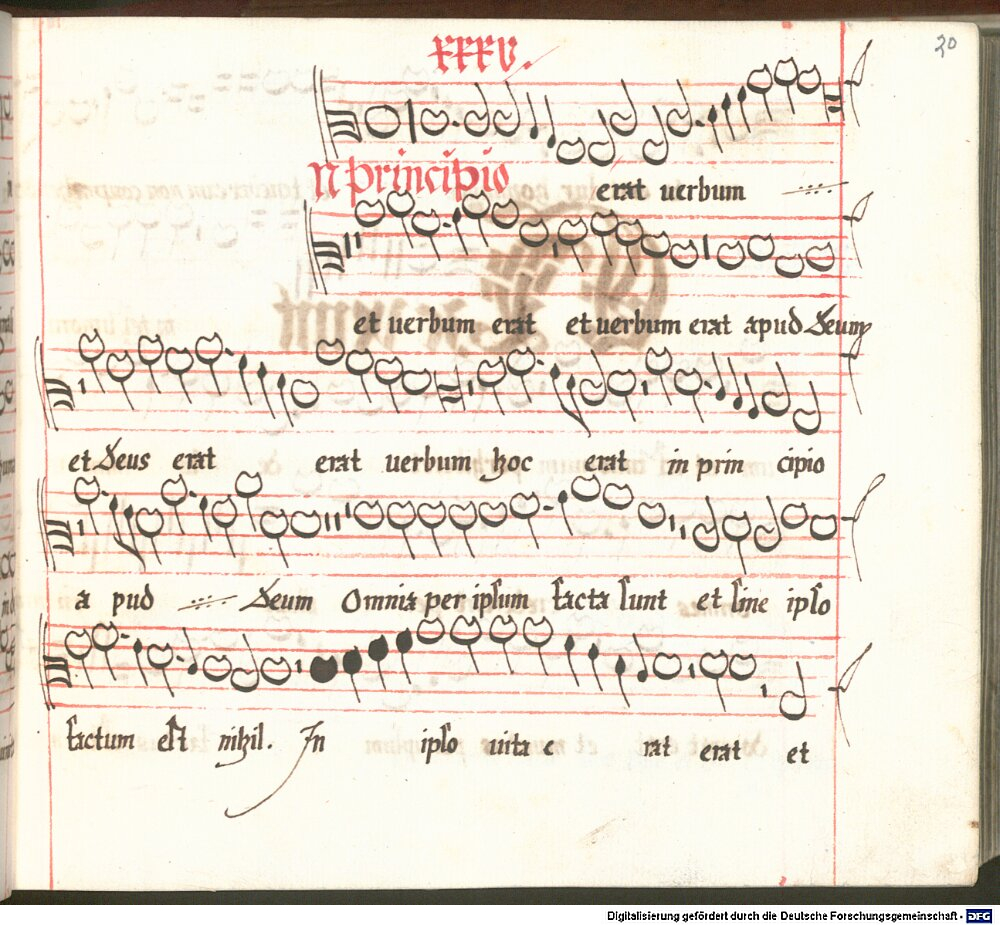 xxxv.
30
N principio erat uerbum
et uerbum erat et uerbum erat apud Deum
et Deus erat erat uerbum hoc erat in prin cipio
a pud Deum Omnia per ipsum facta sunt et sine ipso
factum est nihil. In ipso uita e rat erat et
Digitalisierung gefördert durch die Deutsche Forschungsgemeinschaft - DFG